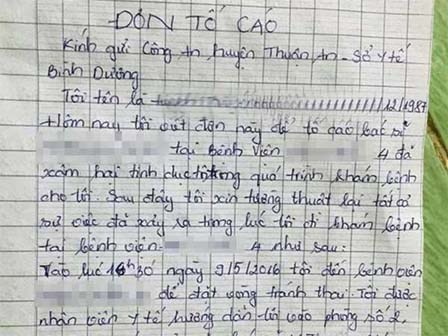 ĐƠN TỐ CÁO
Kính gửi Công an huyện Thuận An - Sở Y tế
Bình Dương
Tôi tên là /12/1987
Hôm nay tôi viết đơn này để tố cáo bác sĩ
tại Bệnh Viện 4 đã
xâm hại tình dục tôi trong quá trình khám bệnh
cho tôi. Sau đây tôi xin tường thuật lại tất cả
sự việc đã xảy ra trong lúc tôi đi khám bệnh
tại bệnh viện 4 như sau:
Vào lúc 16h30 ngày 9/5/2016 tôi đến bệnh viện
để đặt vòng tránh thai. Tôi được
nhân viên y tế hướng dẫn tôi vào phòng số 2.